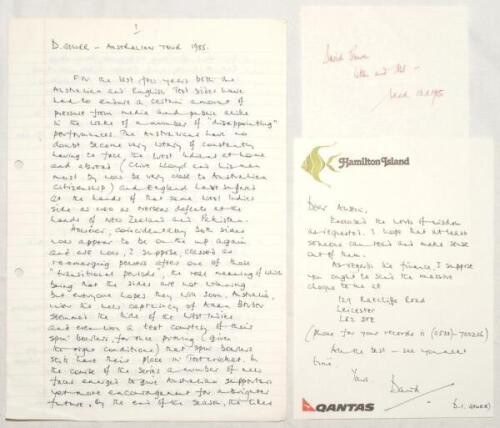 1
D. GOWER – AUSTRALIAN TOUR 1985.
For the last few years both the
Australian and English Test sides have
had to endure a certain amount of
pressure from media and public alike
in the wake of a number of "disappointing"
performances. The Australians have no
doubt become very weary of constantly
having to face the West Indians at home
and abroad (Clive Lloyd and his men
must by now be very close to Australian
Citizenship) and England have suffered
at the hands of that same West Indies
side as well as overseas defeats at the
hands of New Zealand and Pakistan.
However, coincidentally both sides
now appear to be on the up again
and are now, I suppose, classed as
re-emerging periods after one of those
"transitional periods", the real meaning of which
being that the sides are not winning
but everyone hopes they will soon. Australia,
under the new captaincy of Allan Border
stemmed the tide of the West Indies
and even won a test courtesy of their
spin bowlers, for once proving (given
the right conditions) that spin bowlers
still have their place in Test cricket. In
the course of the series a number of new
faces emerged to give Australian supporters
yet more encouragement for a brighter
future. By the end of the season, the likes
David Gower
Used 1985
Hamilton Island
Dear Austin,
Enclosed the words of wisdom
as requested. I hope that at least
someone can read and make sense
out of them.
As regards the finance, I suppose
you ought to send the massive
cheque to me at
Ratcliffe Road
Leicester
(Phone for your records is
All the best – see you next
time.
Yours,
David
QANTAS
(D.I. GOWER)